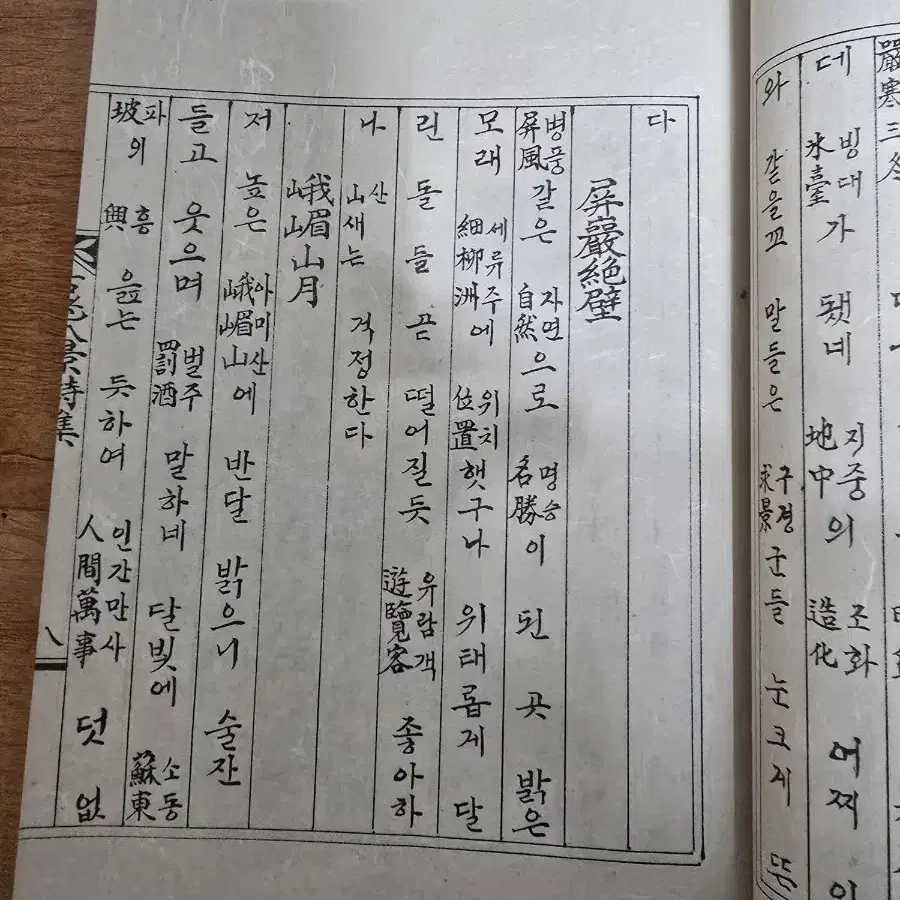 嚴寒三冬
데 氷臺빙대가 됐네 地中지중의 造化조화 어찌 이
와 같을꼬 말들은 求景구경군들 눈크게 뜬
다
屛巖絶壁
屛風병풍같은 自然자연으로 名勝명승이 된 곳 밝은
모래 細柳洲세류주에 位置위치햇구나 위태롭게 달
린 돌들 끋 떨어질듯 遊覽客유람객 좋아하
나 山산새는 걱정한다
峨嵋山月
저 높은 峨嵋山아미산에 반달 밝으니 술잔
들고 웃으며 罰酒벌주 말하네 달빛에 蘇東소동
坡파의 興흥 읊는 듯하여 人間萬事인간만사 덧 없
八景詩集
八